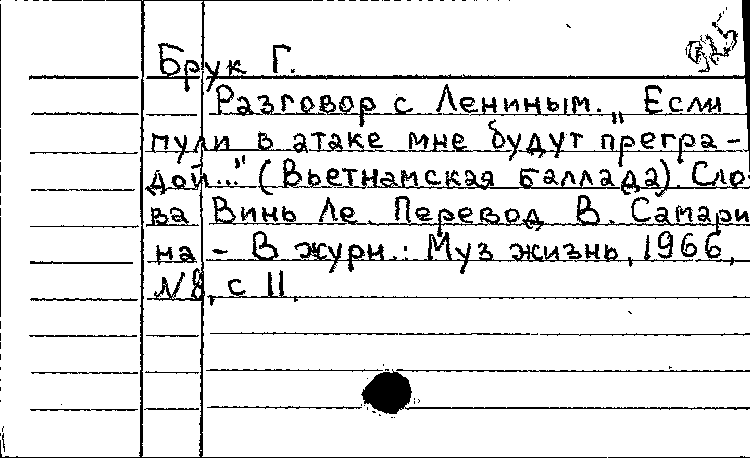 925
Брук Г.
Разговор с Лениным. „Если
пули в атаке мне будут прегра-
дой..." (Вьетнамская баллада). Сло-
ва Винь Ле. Перевод В. Самари
на - В журн.: Муз жизнь, 1966,
№8, с 11.